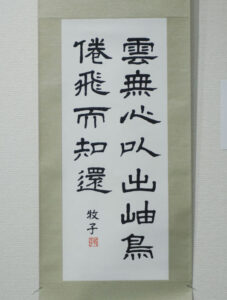 雲無心以出岫鳥
倦飛而知還
牧子